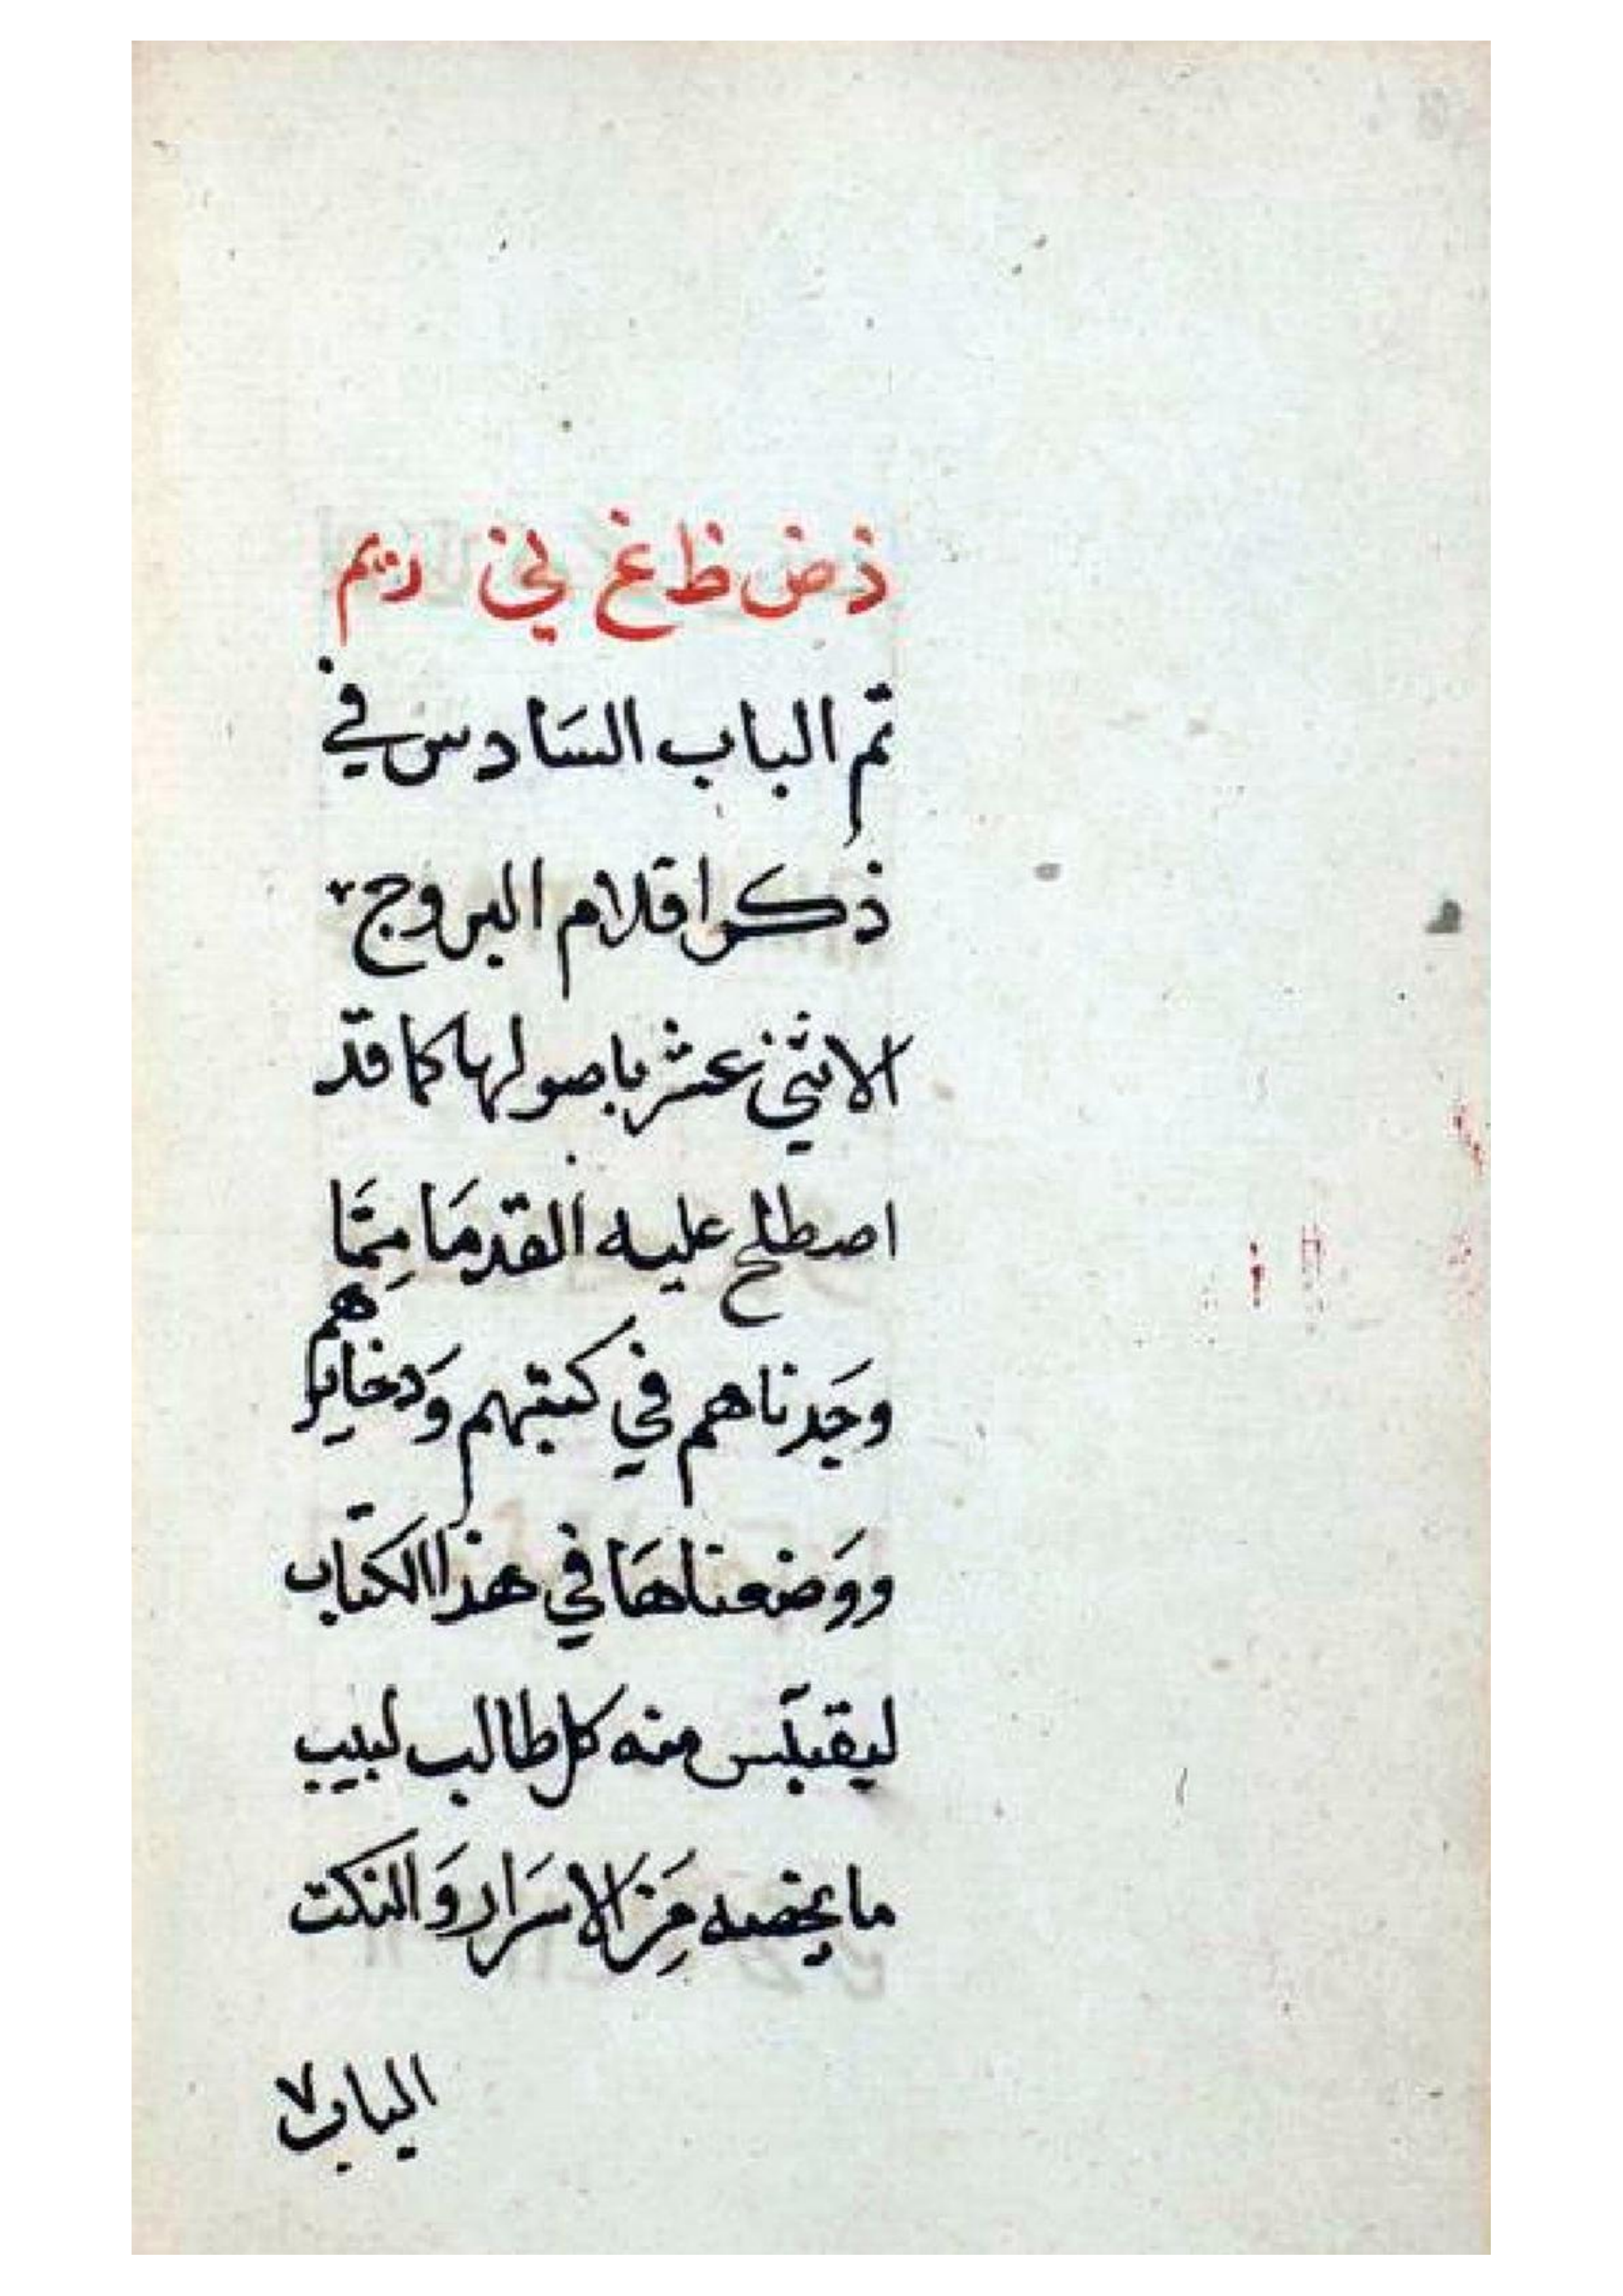 ذ ض ظ غ لخ ريم
تم الباب السَادس في
ذكر اقلام البروج
الاثني عشر باصولها كما قد
اصطلح عليه القدمَا مِمَّا
وجَدناهم في كتبهم وَدخايرهم
ووَضعناهَا في هذا الكتاب
ليقتبَس منه كل طالب لبيب
ما يخصه مِنَ الاسرَار وَالنكت
الباب ٧